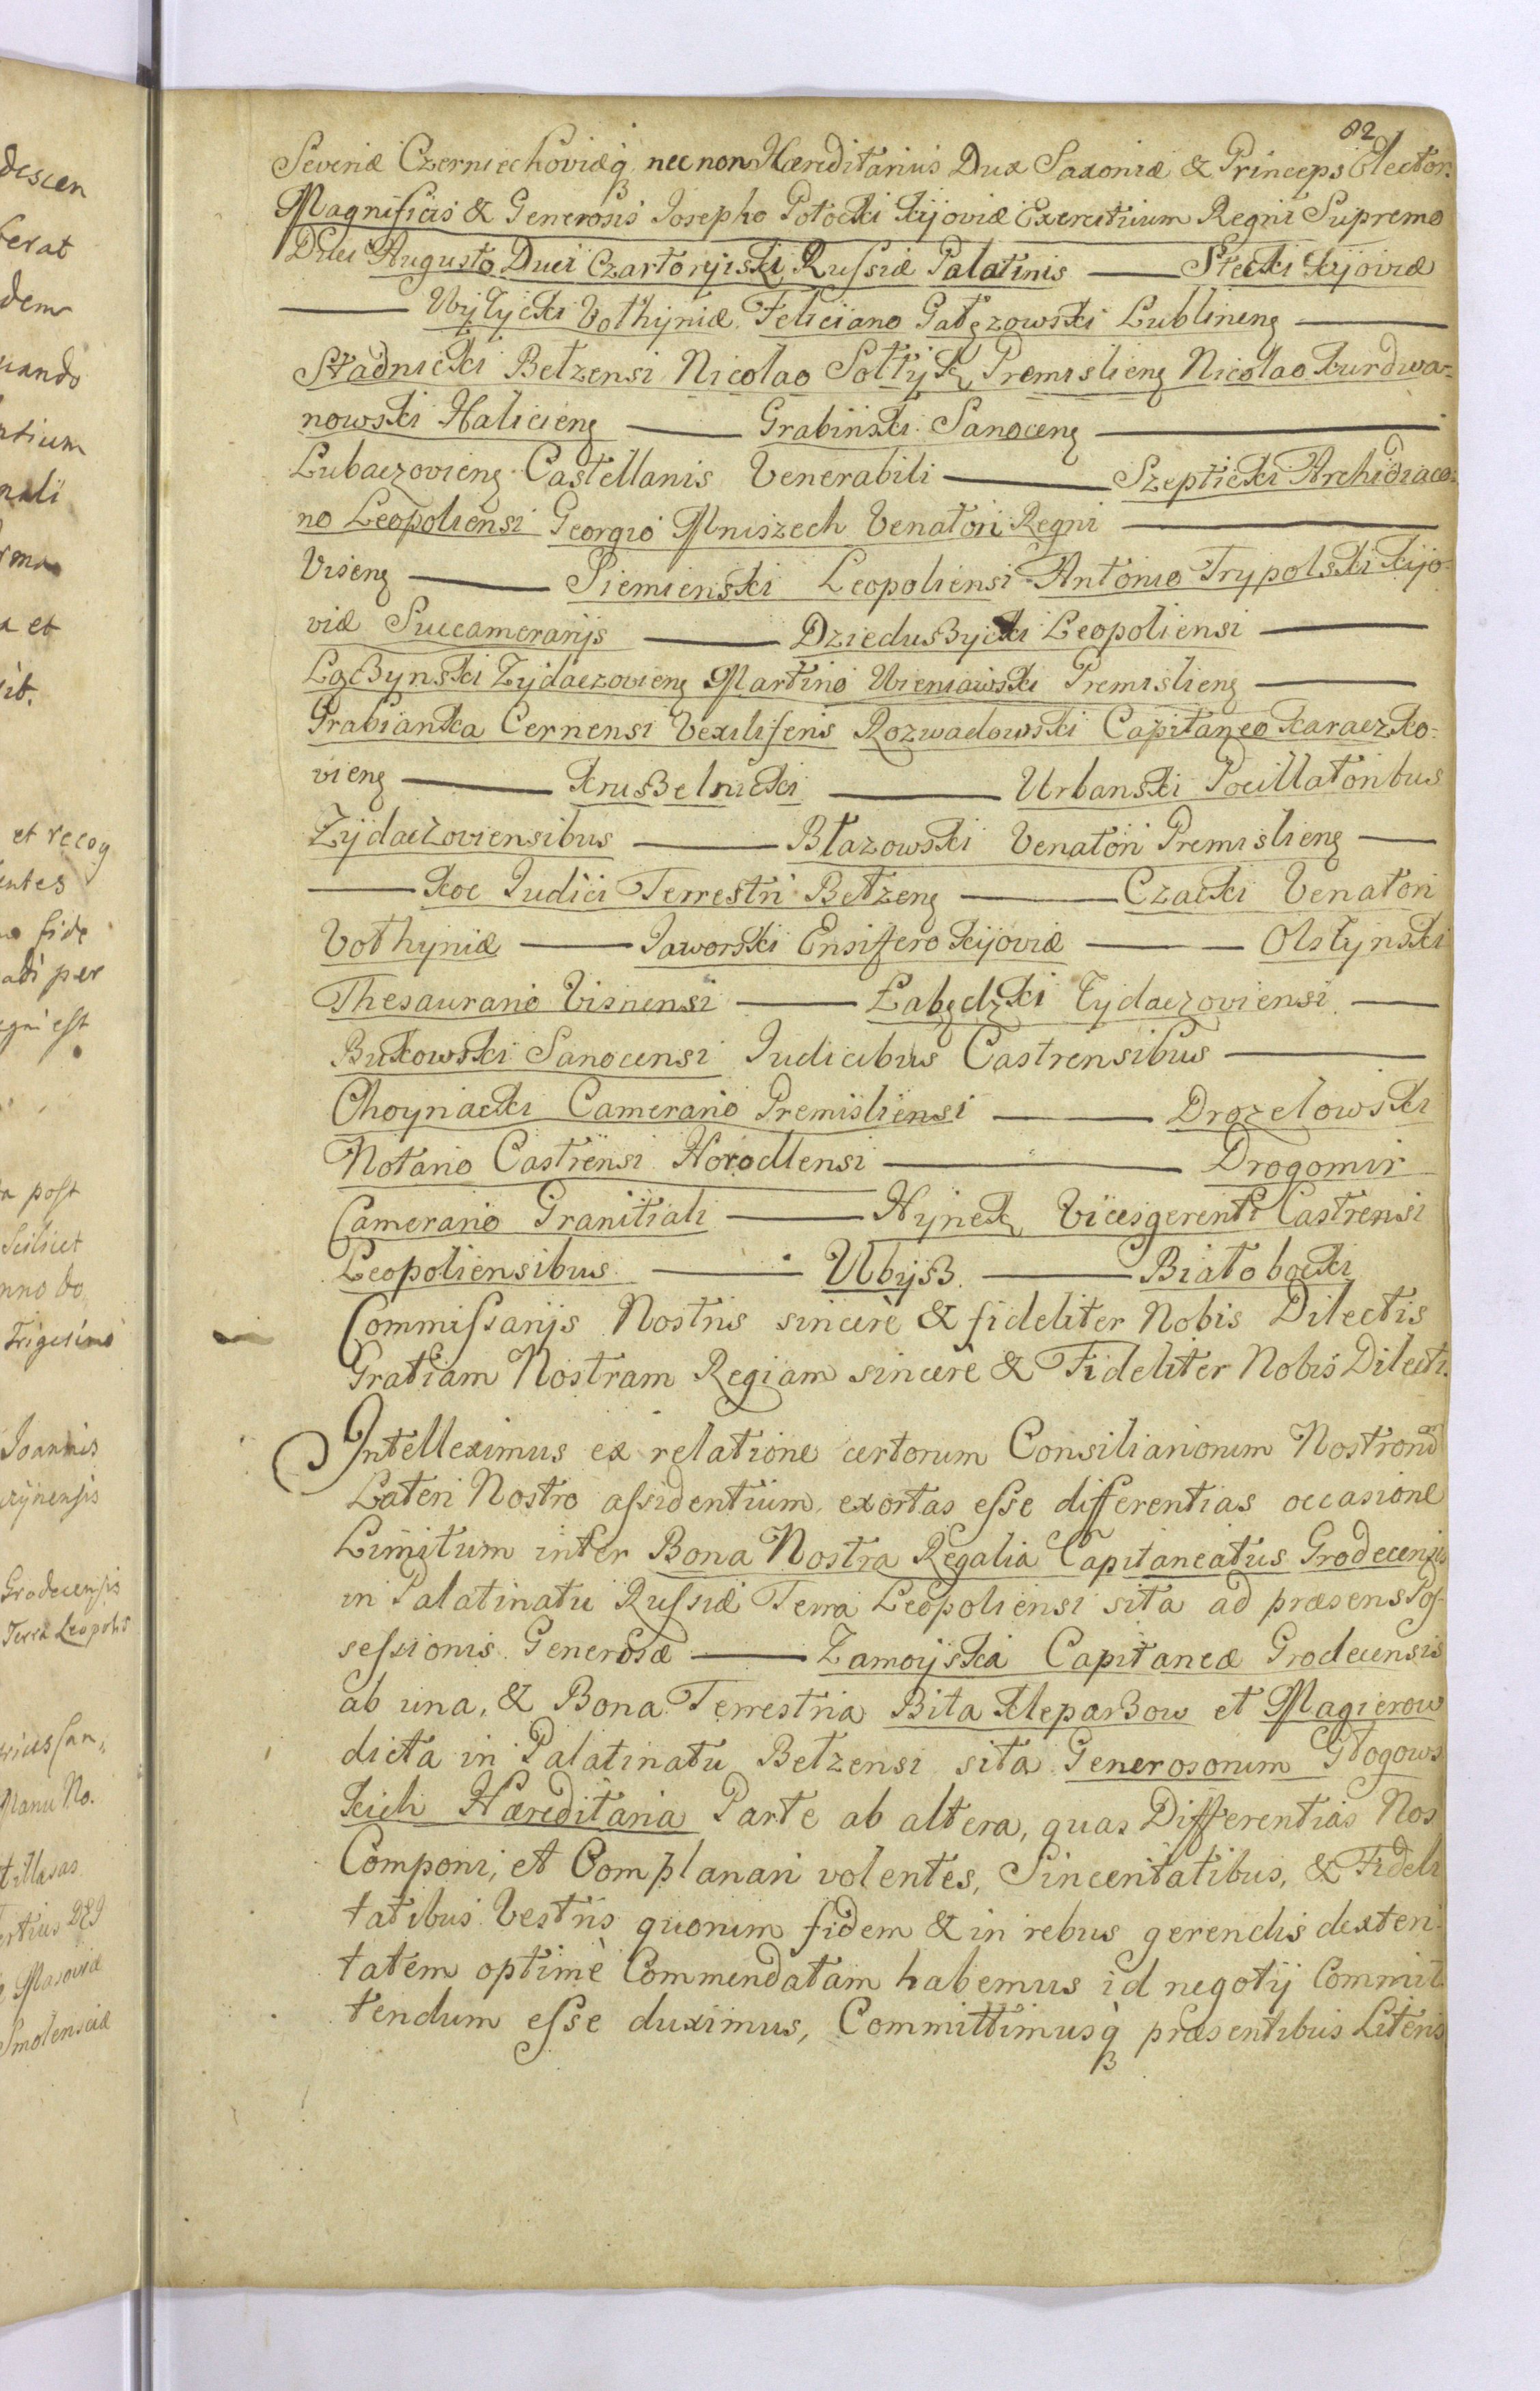 82
Severiæ Czerniechoviæq₃ nec non Hæreditarius Dux Saxoniæ & Princeps Elector.
Magnificis & Generosis Josepho Potocki Kijoviæ Exercituum Regni Supremo
Duci Augusto Duci Czartoryiski Russiæ Palatinis — Stecki Kijoviæ
— Wyżycki Vołhyniæ Feliciano Gałęzowski Lublineng —
Stadnicki Bełzensi Nicolao Sołtyk Premislieng Nicolao Kurdwa-
nowski Halicieng — Grabiński Sanoceng —
Lubaczovieng Castellanis Venerabili — Szepticki Archidiaco-
no Leopoliensi Georgio Mniszech Venatori Regni —
Viseng — Siemienski Leopoliensi Antonio Trypolski Kijo-
viæ Succamerarijs — Dzieduszycki Leopoliensi —
Lączynski Zydaczovieng Martino Wieniawski Premislieng —
Grabianka Cernensi Vexiliferis Rozwadowski Capitaneo Karaczko-
vieng — Kruszelnicki — Urbanski Pocillatoribus
Zydaczoviensibus — Błazowski Venatori Premislieng —
— Koc Judici Terrestri Bełzeng — Czacki Venatori
Vołhyniæ — Jaworski Ensifero Kijoviæ — Olstynski
Thesaurario Visnensi — Łabędzki Zydaczoviensi —
Bukowski Sanocensi Judicibus Castrensibus —
Choynacki Camerario Premisliensi — Drozelowski
Notario Castrensi Horodlensi — Drogomir
Camerario Granitiali — Hynek Vicesgerenti Castrensi
Leopoliensibus — Ubysz — Białobocki
Commissarijs Nostris sincerè & fideliter Nobis Dilectis
Gratiam Nostram Regiam sincerè & Fideliter Nobis Dilecti.
Intelleximus ex relatione certorum Consiliariorum Nostrorũ
Lateri Nostro assidentium exortas esse differentias occasione
Limitum inter Bona Nostra Regalia Capitaneatus Grodecensis
in Palatinatu Russiæ Terra Leopoliensi sita ad præsens Pos-
sessionis Generosæ — Zamoyska Capitaneæ Grodecensis
ab una, & Bona Terrestria Biła Kleparzow et Magierow
dicta in Palatinatu Bełzensi sita Generosorum Głogows
kich Hæreditaria Parte ab altera, quas Differentias Nos
Componi, et Complanari volentes, Sinceritatibus, & Fideli
tatibus Vestris quorum fidem & in rebus gerendis dexteri-
tatem optimè Commendatam habemus id negotij Commit-
tendum esse duximus, Committimusq₃ præsentibus Literis